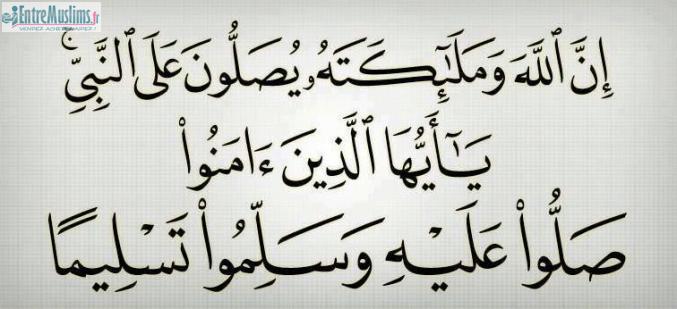 EntreMuslims.fr
إِنَّ ٱللَّهَ وَمَلَـٰٓئِكَتَهُۥ يُصَلُّونَ عَلَى ٱلنَّبِىِّ ۚ
يَـٰٓأَيُّهَا ٱلَّذِينَ ءَامَنُوا۟
صَلُّوا۟ عَلَيْهِ وَسَلِّمُوا۟ تَسْلِيمًا